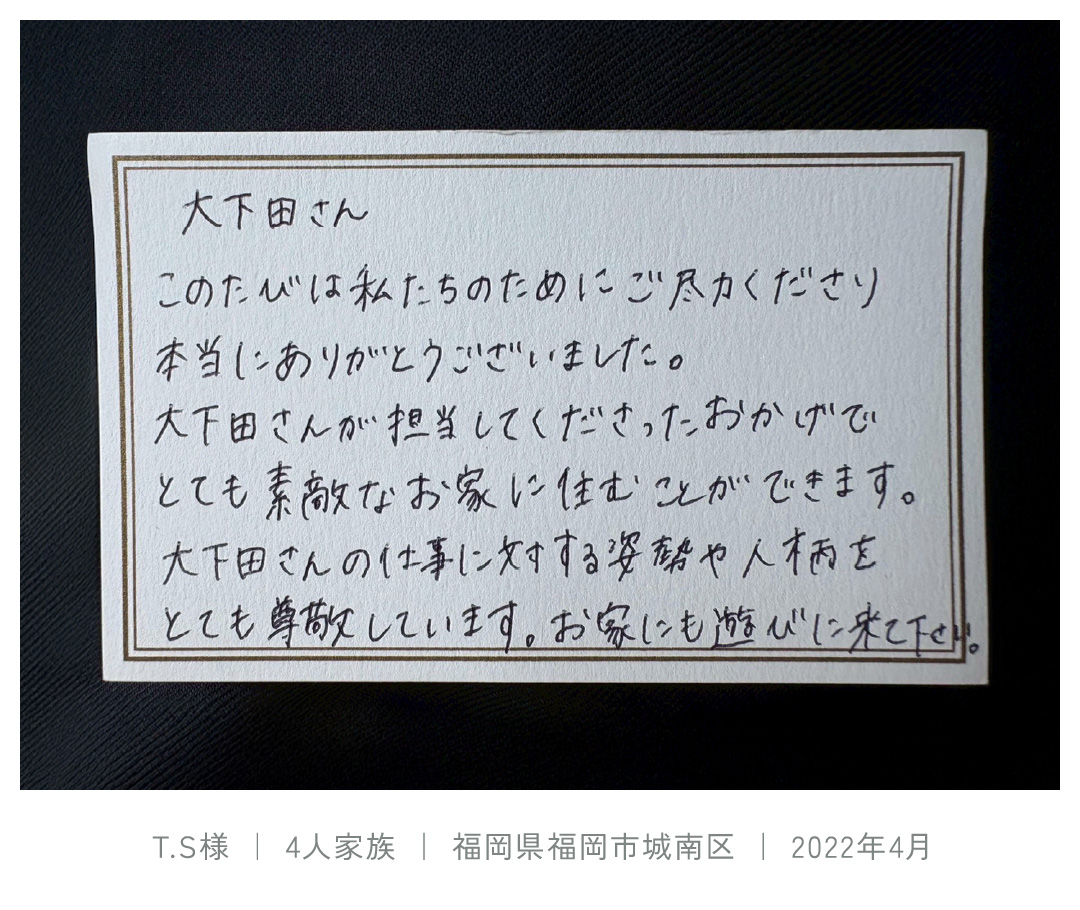 大下田さん
このたびは私たちのためにご尽力くださり
本当にありがとうございました。
大下田さんが担当してくださったおかげで
とても素敵なお家に住むことができます。
大下田さんの仕事に対する姿勢や人柄を
とても尊敬しています。お家にも遊びに来て下さい。
T.S様 | 4人家族 | 福岡県福岡市城南区 | 2022年4月